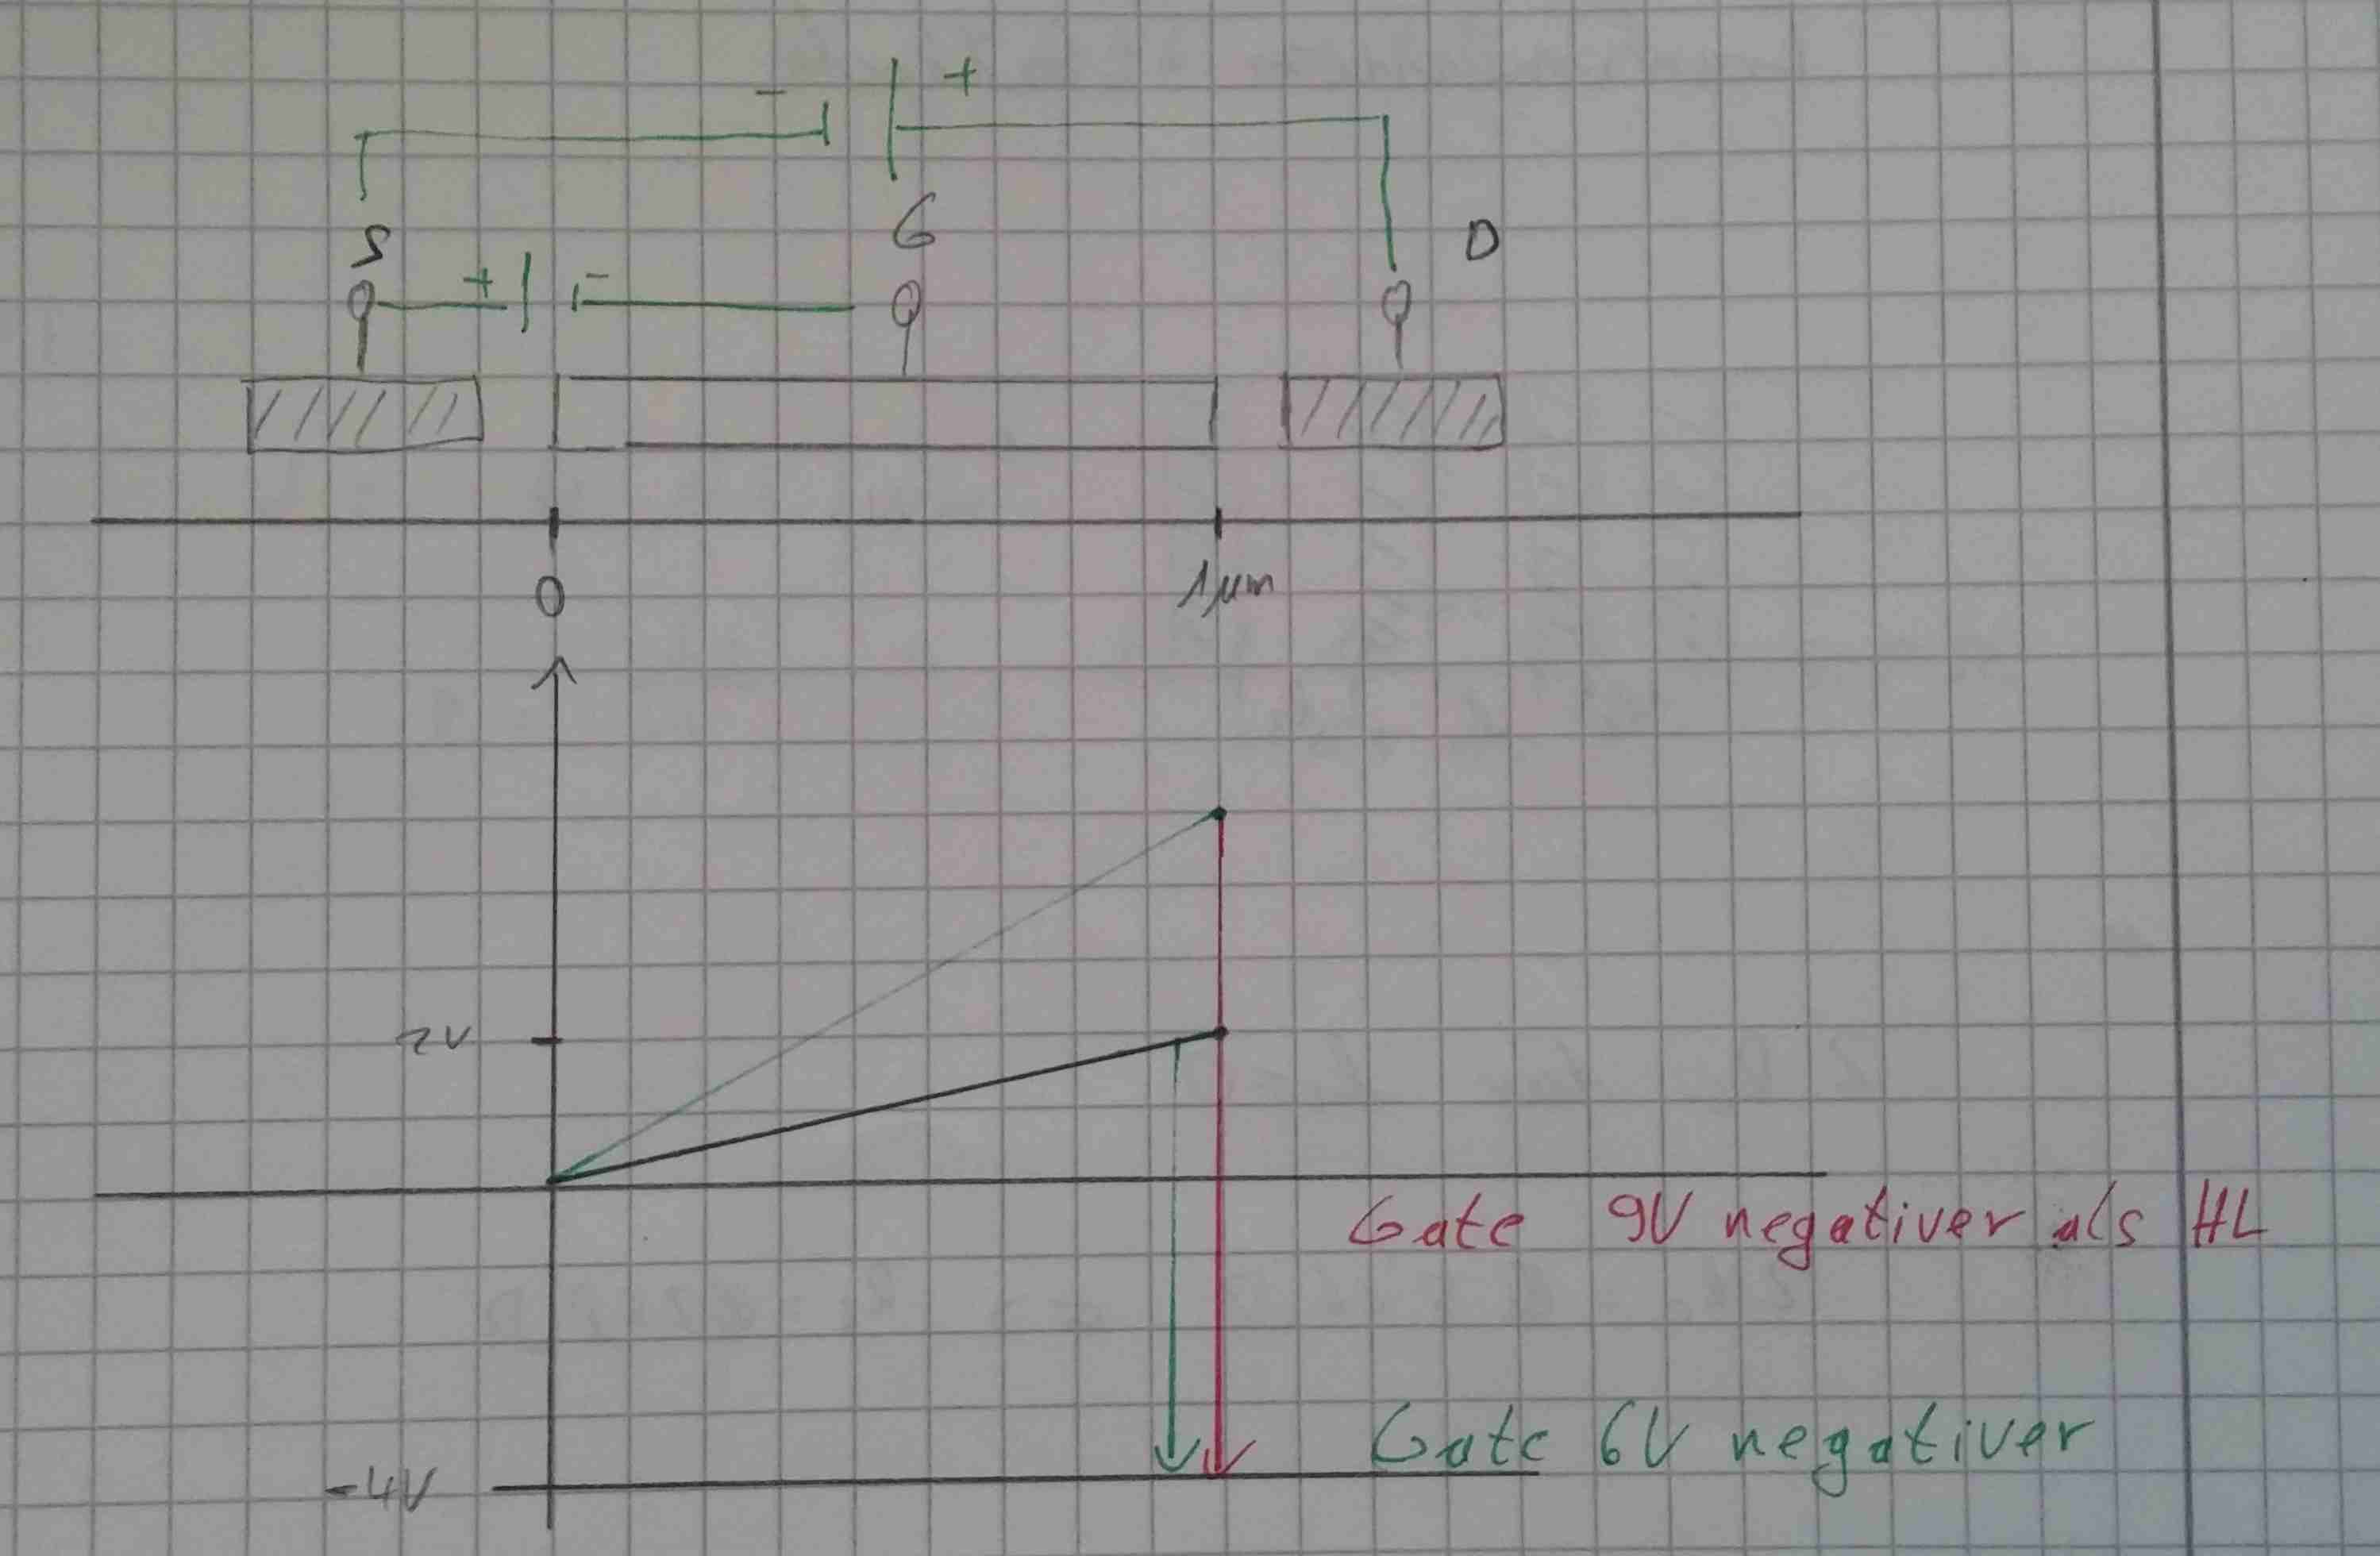 - +
S G D
+ -
0 1µm
2V
Gate 9V negativer als HL
Gate 6V negativer
-4V